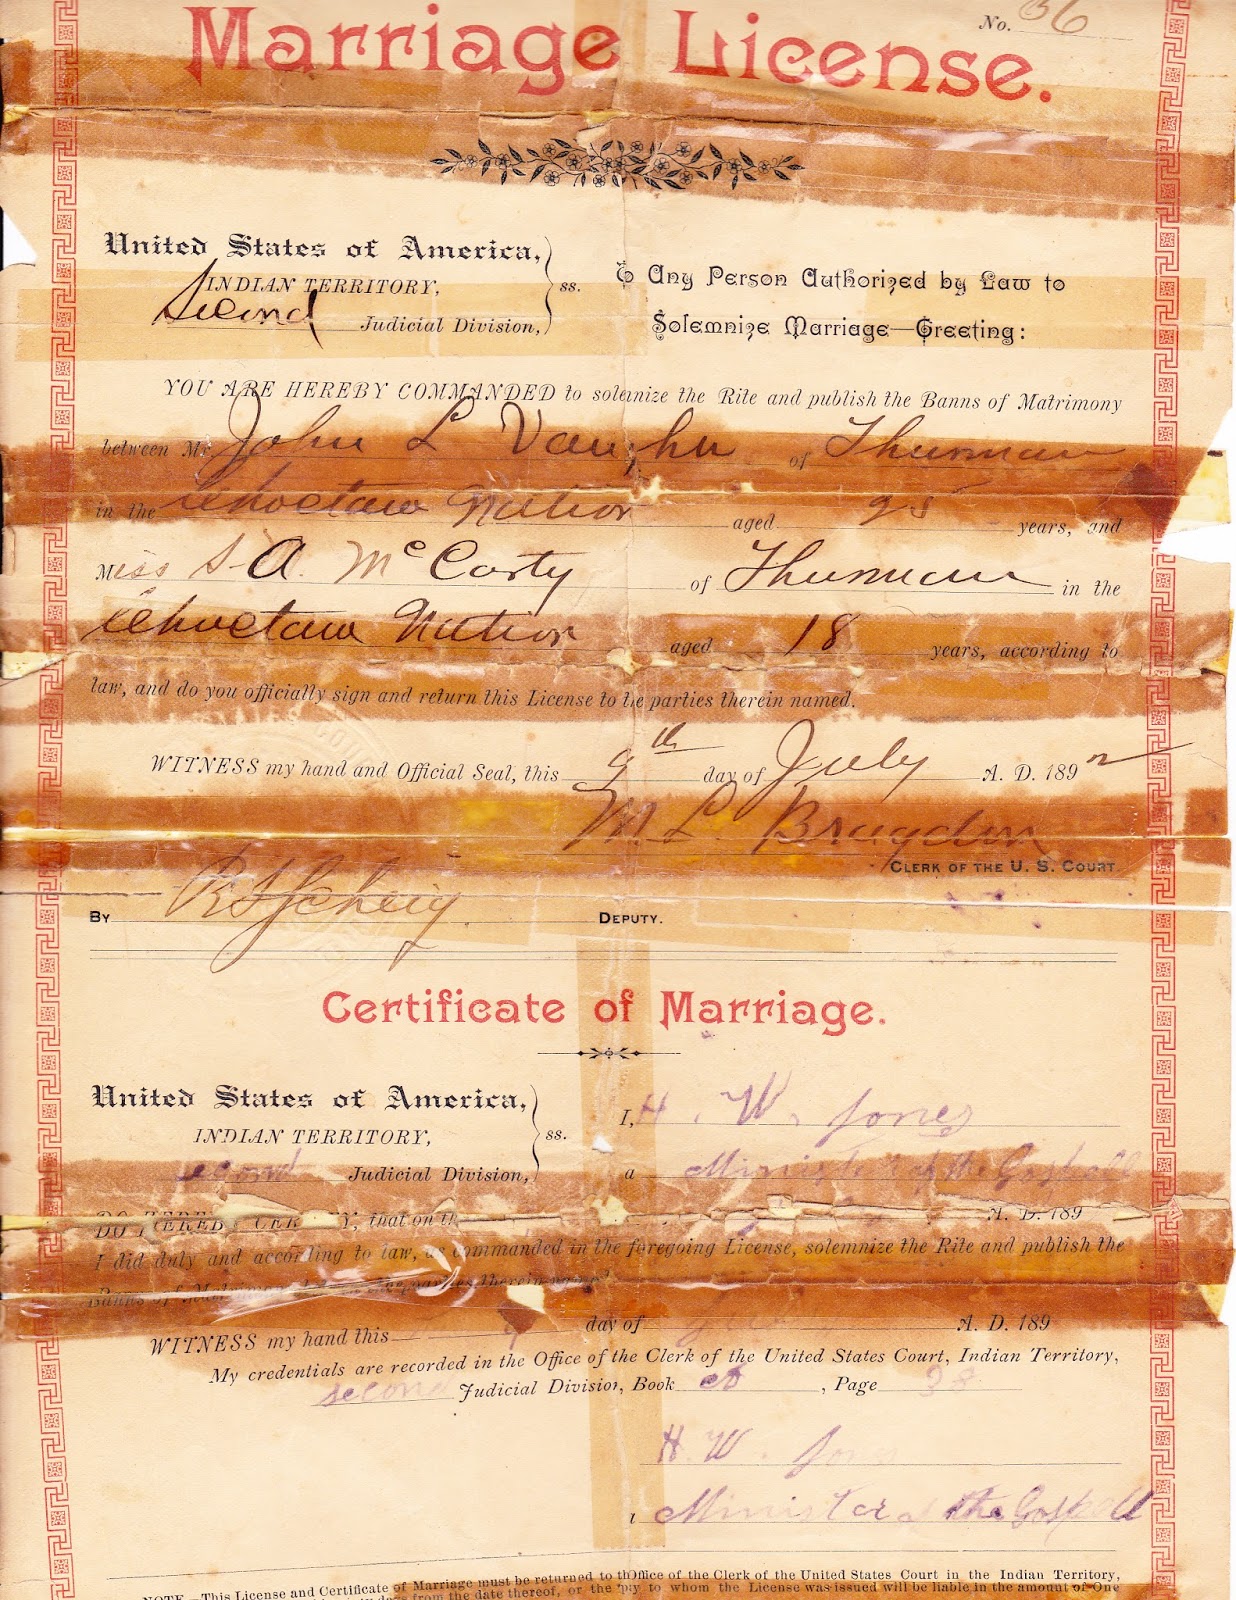 No. 36
Marriage License.
United States of America,
INDIAN TERRITORY,
Second Judicial Division,
ss.
To Any Person Authorized by Law to
Solemnize Marriage—Greeting:
YOU ARE HEREBY COMMANDED to solemnize the Rite and publish the Banns of Matrimony
between Mr. John L Vaughn of Thurman
in the Choctaw Nation aged 25 years, and
Miss S. A. McCarty of Thurman in the
Choctaw Nation aged 18 years, according to
law, and do you officially sign and return this License to the parties therein named.
WITNESS my hand and Official Seal, this 9th day of July A. D. 1892
M L Bragdon
CLERK OF THE U. S. COURT
By DEPUTY.
Certificate of Marriage.
United States of America,
INDIAN TERRITORY,
second Judicial Division,
ss.
I, H. W. Jones
a Minister of the Gospell
DO HEREBY CERTIFY, that on the A. D. 189
I did duly and according to law, as commanded in the foregoing License, solemnize the Rite and publish the
Banns of Matrimony parties therein named.
WITNESS my hand this 9 day of A. D. 189
My credentials are recorded in the Office of the Clerk of the United States Court, Indian Territory,
second Judicial Division, Book , Page 38
H. W. Jones
Minister of the Gospell
NOTE.—This License and Certificate of Marriage must be returned to the Office of the Clerk of the United States Court in the Indian Territory,
days from the date thereof, or the party to whom the License was issued will be liable in the amount of One